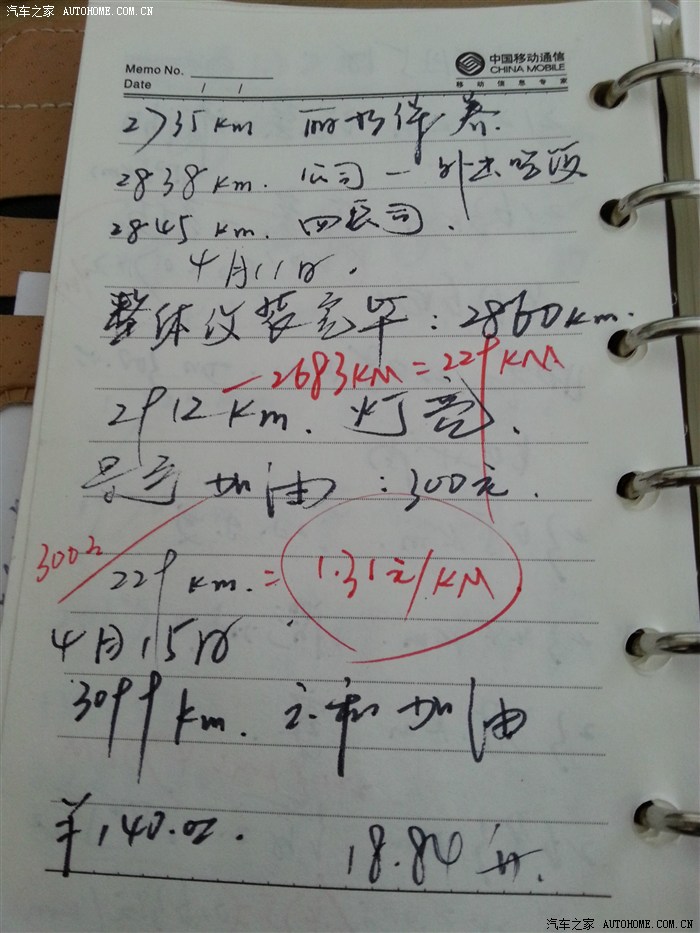 汽车之家 AUTOHOME.COM.CN
中国移动通信
CHINA MOBILE
移动信息专家
Memo No.
Date / /
2735 km 保养.
2838 km. 公司一外出吃饭
2845 km. 回公司.
4月11日.
整体仪装完毕:2860km.
-2683KM=229KM
2912 km. 灯亮.
加油:300元.
300元
229 km. = 1.31元/KM
4月15日
3099 km. 加油
¥140.02. 18.84升.
汽车之家 AUTOHOME.COM.CN